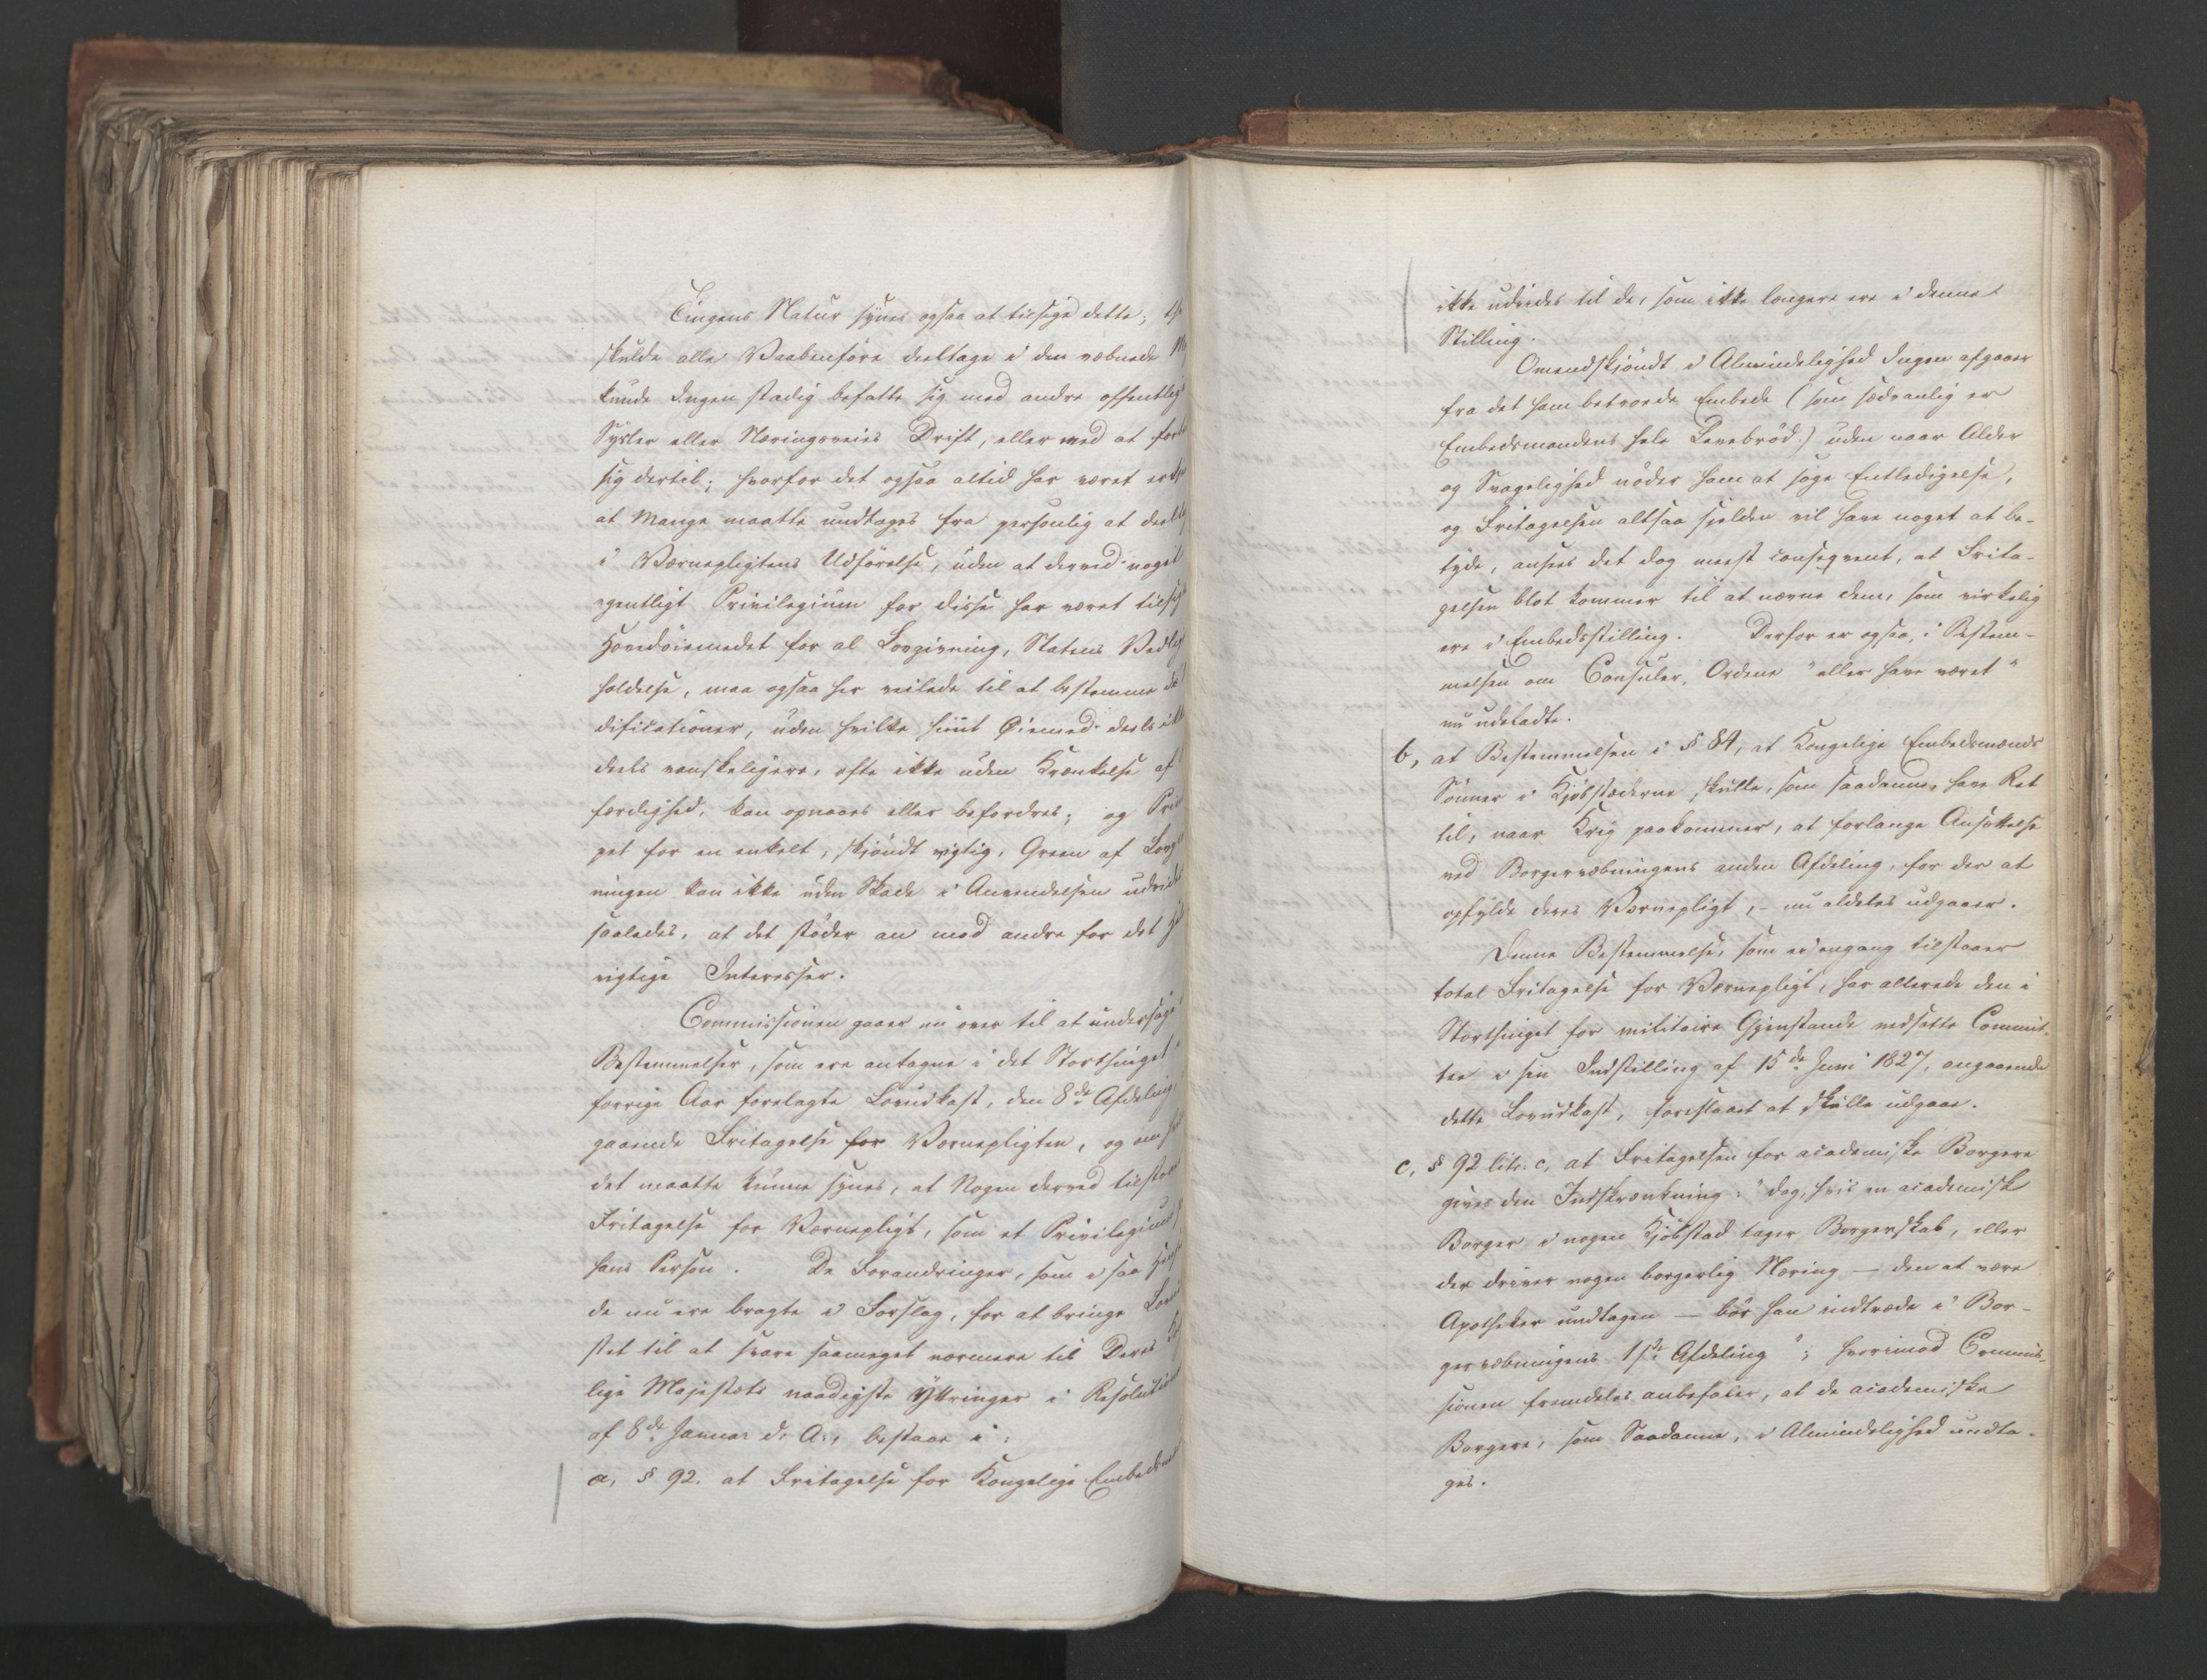 Tingens Natur synes ogsaa at tilsige dette; th
skulde alle Vaabenföre deeltage i den væbnede M
kunde Ingen stadig befatte sig med andre offentlig
Sysler eller Næringsveies Drift, eller med at forb
sig dertil; hvorfor det ogsaa altid har været erkj
at Mange maatte undtages fra personlig at deelt
i Værnepligtens Udförelse, uden at derved noget
egentligt Privilegium for disse har været tilsig
Hovedöiemedet for al Lovgivning, Statens Vedlige
holdelse, maa ogsaa her veilede til at bestemme de
dificationer, uden hvilke hiint Öiemed deels ikk
deels vanskeligere, ofte ikke uden Krænkelse af
færdighed, kan opnaaes eller befordres; og Prin
pet for en enkelt, skjöndt vigtig, Green af Lovg
ningen kan ikke uden Skade i Anvendelsen udvides
saaledes, at det stöder an mod andre for det H
vigtige Interesser.
Commissionen gaaer nu over til at undersöge
Bestemmelser, som ere antagne i det Storthinget
forrige Aar forelagte Lovudkast, den 8de Afdeling
gaaende Fritagelse for Værnepligten, og om h
det maatte kunne synes, at Nogen derved tilstaaes
Fritagelse for Værnepligt, som et Privilegium f
hans Person. De Forandringer, som i saa Hens
de nu ere bragte i Forslag, for at bringe Lovud
stet til at svare saameget nærmere til Deres Ko
lige Majestæts naadigste Yttringer i Resolution
af 8de Januar d. A., bestaae i:
a, § 92. at Fritagelse for Kongelige Embedsmæ
ikke udvides til de, som ikke længere ere i denne
Stilling.
Omendskjöndt i Almindelighed Ingen afgaaer
fra det ham betroede Embede (som sædvanlig er
Embedsmandens hele Levebröd) uden naar Alder
og Svagelighed nöder ham at söge Entledigelse,
og Fritagelsen altsaa sjelden vil have noget at be-
tyde, ansees det dog meest conseqvent, at Frita-
gelsen blot kommer til at nævne dem, som virkelig
ere i Embedsstilling. Derfor er ogsaa, i Bestem-
melsen om Consuler, Ordene "eller have været"
nu udeladte.
b, at Bestemmelsen i § 84, at Kongelige Embedsmænds
Sönner i Kjöbstæderne skulle, som saadanne, have Ret
til, naar Krig paakommer, at forlange Ansættelse
ved Borgervæbningens anden Afdeling, for der at
opfylde deres Værnepligt, – nu aldeles udgaaer.
Denne Bestemmelse, som ei engang tilstaaer
total Fritagelse for Værnepligt, har allerede den i
Storthinget for militaire Gjenstande nedsatte Commit-
tee i sin Indstilling af 15de Juni 1827, angaaende
dette Lovudkast, foreslaaet at skulle udgaae.
c, § 92 litr. c, at Fritagelsen for academiske Borgere
gives den Indskrænkning: "dog, hvis en academisk
Borger i nogen Kjöbstad tager Borgerskab, eller
der driver nogen borgerlig Næring — den at være
Apotheker undtagen — bör han indtræde i Bor-
gervæbningens 1ste Afdeling"; hvorimod Commis-
sionen fremdeles anbefaler, at de academiske
Borgere, som Saadanne, i Almindelighed undta-
ges.